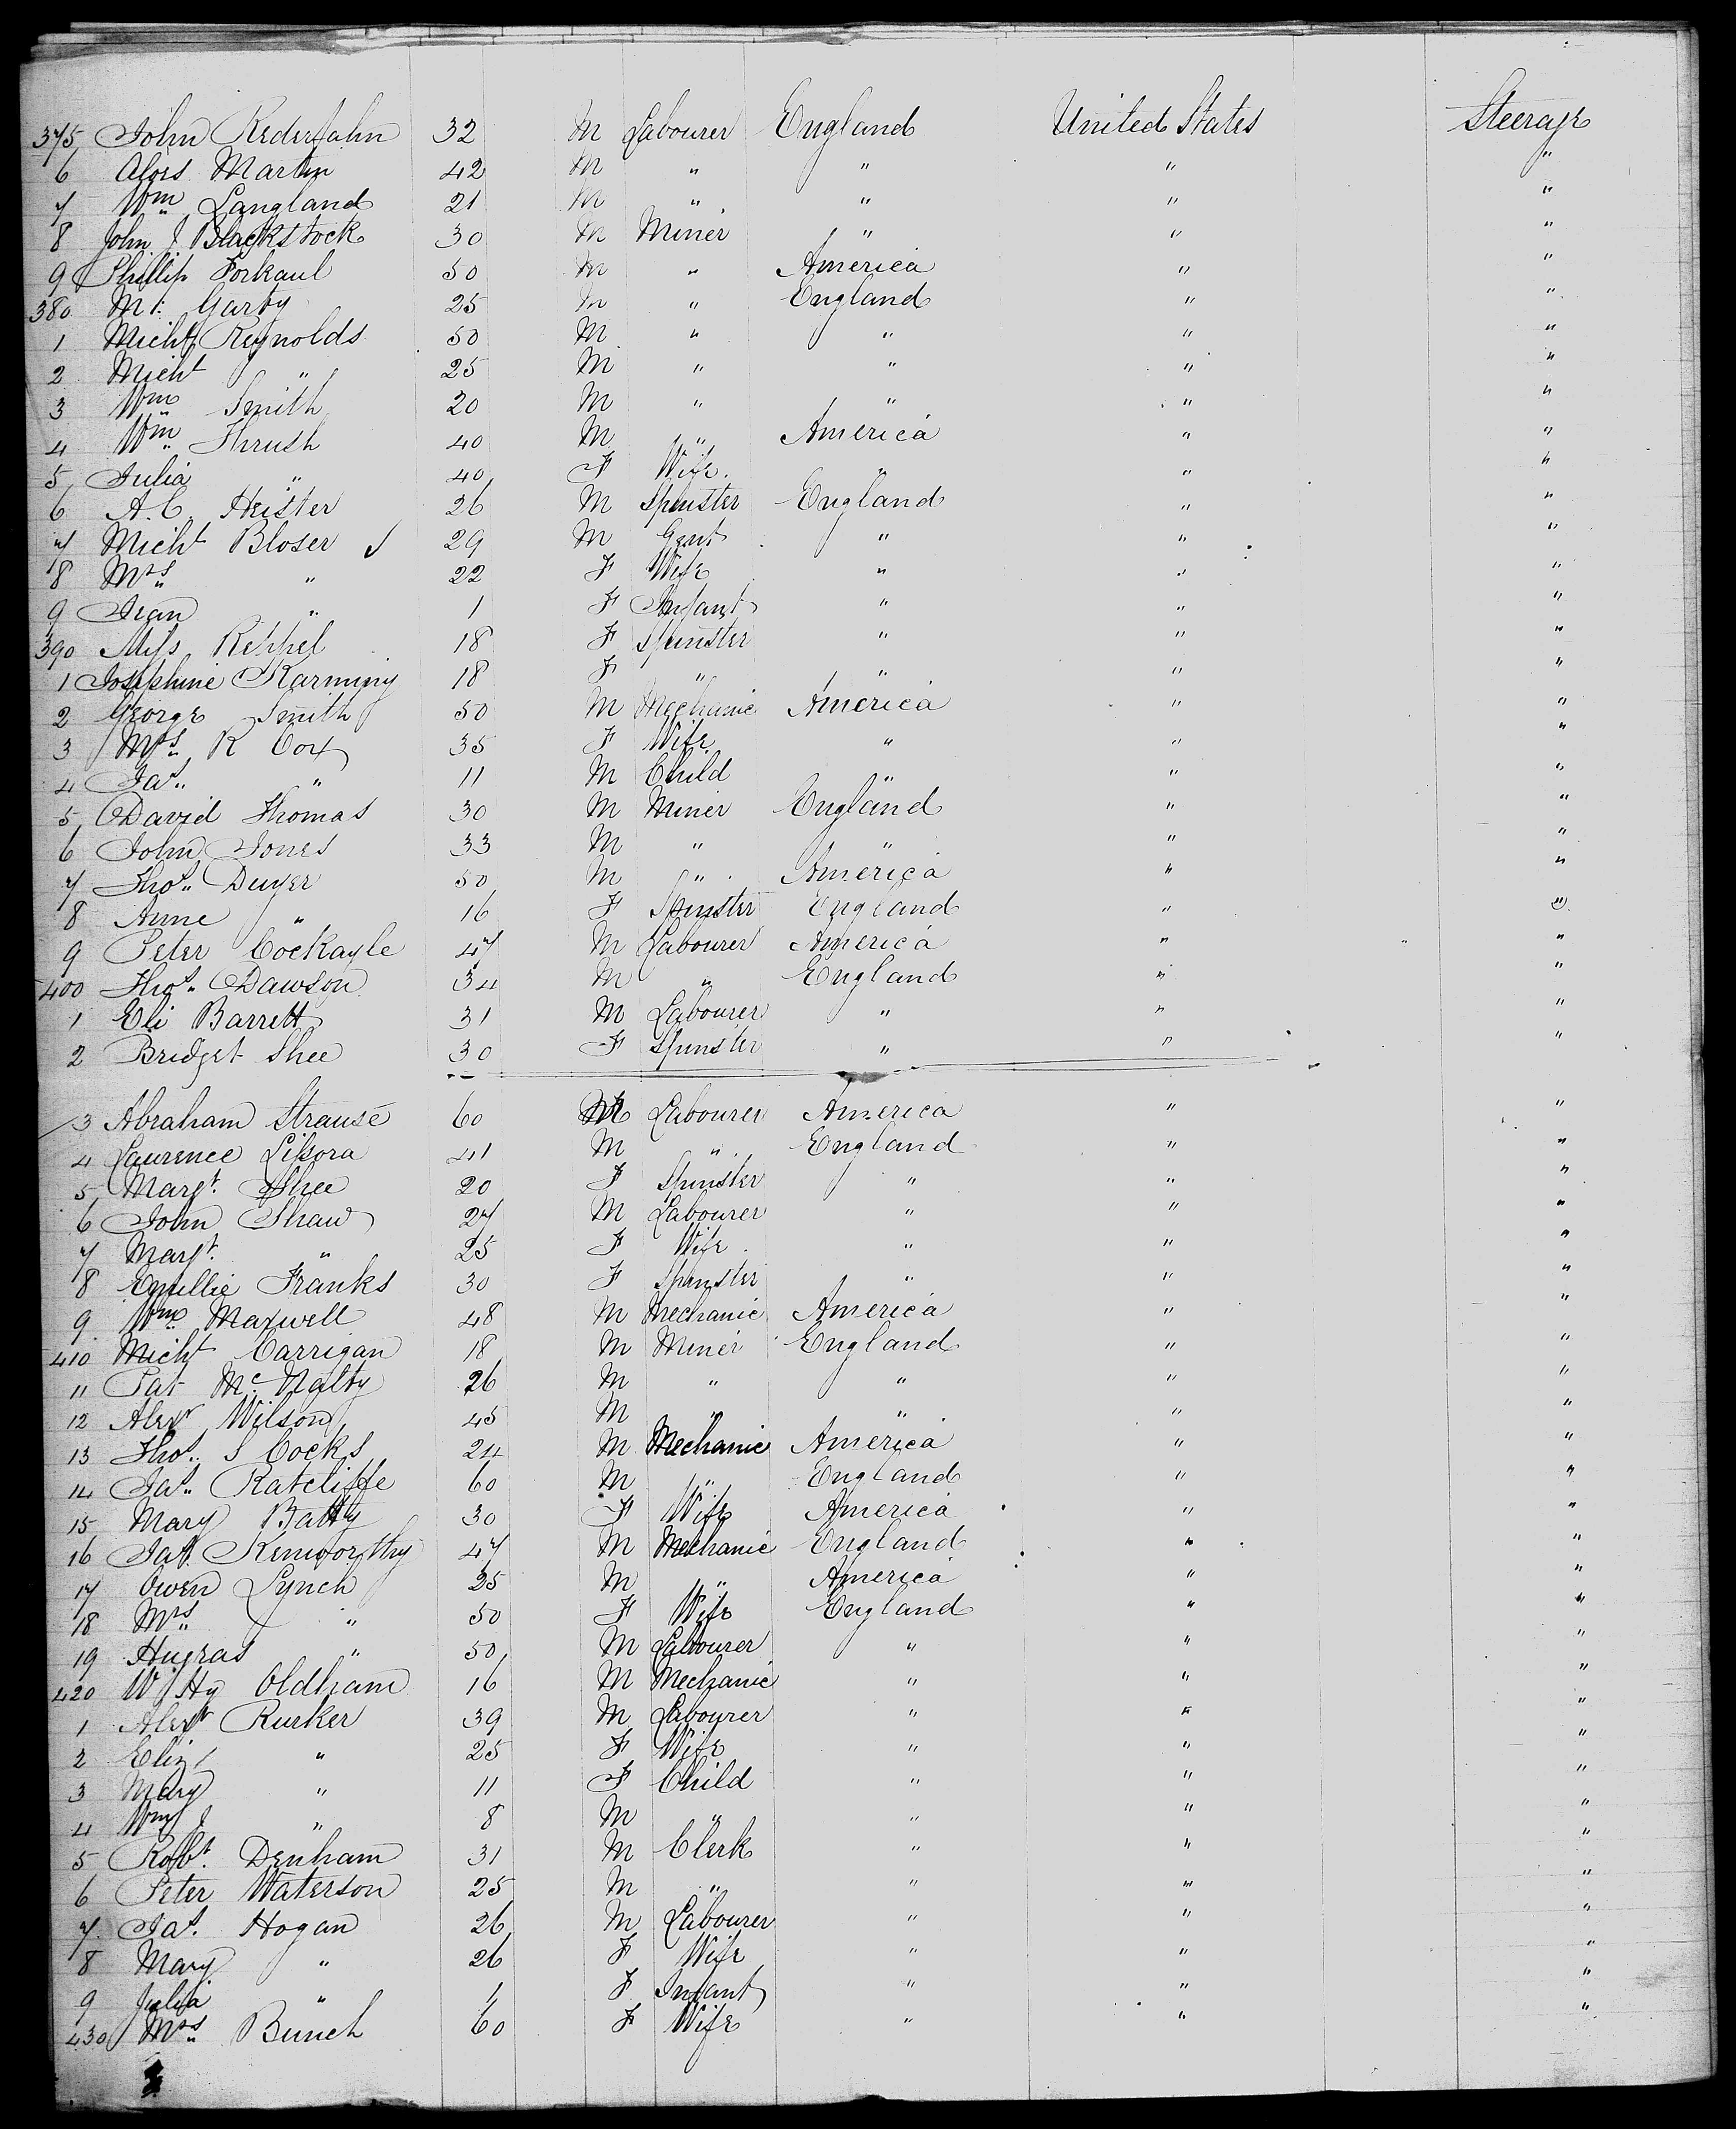 375 John Rederjahn 32 M Labourer England United States Steerage
6 Alois Martin 42 M " " " "
7 Wm Langland 21 M " " " "
8 John J Blackstock 30 M Miner " " "
9 Phillip Forkaul 50 M " America " "
380 Mr. Garty 25 M " England " "
1 Michl Reynolds 50 M " " " "
2 Michl " 25 M " " " "
3 Wm Smith 20 M " " " "
4 Wm Thrush 40 M " America " "
5 Julia " 40 F Wife " " "
6 A. C. Heister 26 M Spinster England " "
7 Michl Bloser 29 M Gent " " "
8 Mrs " 22 F Wife " " "
9 Jean " 1 F Infant " " "
390 Miss Keppel 18 F Spinster " " "
1 Josephine Karminy 18 F " " " "
2 George Smith 50 M Mechanic America " "
3 Mrs R Cox 35 F Wife " " "
4 Jas. " 11 M Child " " "
5 David Thomas 30 M Miner England " "
6 John Jones 33 M " " " "
7 Thos. Dwyer 50 M " America " "
8 Anne " 16 F Spinster England " "
9 Peter Cockayle 47 M Labourer America " "
400 Thos. Dawson 34 M " England " "
1 Eli Barrett 31 M Labourer " " "
2 Bridget Shee 30 F Spinster " " "
3 Abraham Strause 60 M Labourer America " "
4 Laurence 41 M " England " "
5 Margt. Shee 20 F Spinster " " "
6 John Shaw 27 M Labourer " " "
7 Margt. " 25 F Wife " " "
8 Emillie Franks 30 F Spinster " " "
9 Wm Maxwell 48 M Mechanic America " "
410 Michl Carrigan 18 M Miner England " "
11 Pat Mc. Nalty 26 M " " " "
12 Alexr Wilson 45 M " " " "
13 Thos. S Cocks 24 M Mechanic America " "
14 Jas. Ratcliffe 60 M " England " "
15 Mary Batty 30 F Wife America " "
16 Jas. Kenworthy 47 M Mechanic England " "
17 Owen Lynch 25 M " America " "
18 Mrs " 50 F Wife England " "
19 Hugras " 50 M Labourer " " "
420 W Hy Oldham 16 M Mechanic " " "
1 Alexr Rurker 39 M Labourer " " "
2 Eliz " 25 F Wife " " "
3 Mary " 11 F Child " " "
4 Wm J " 8 M " " " "
5 Robt. Denham 31 M Clerk " " "
6 Peter Waterson 25 M " " " "
7 Jas. Hogan 26 M Labourer " " "
8 Mary " 26 F Wife " " "
9 Julia " 1 F Infant " " "
430 Mrs Bunch 60 F Wife " " "